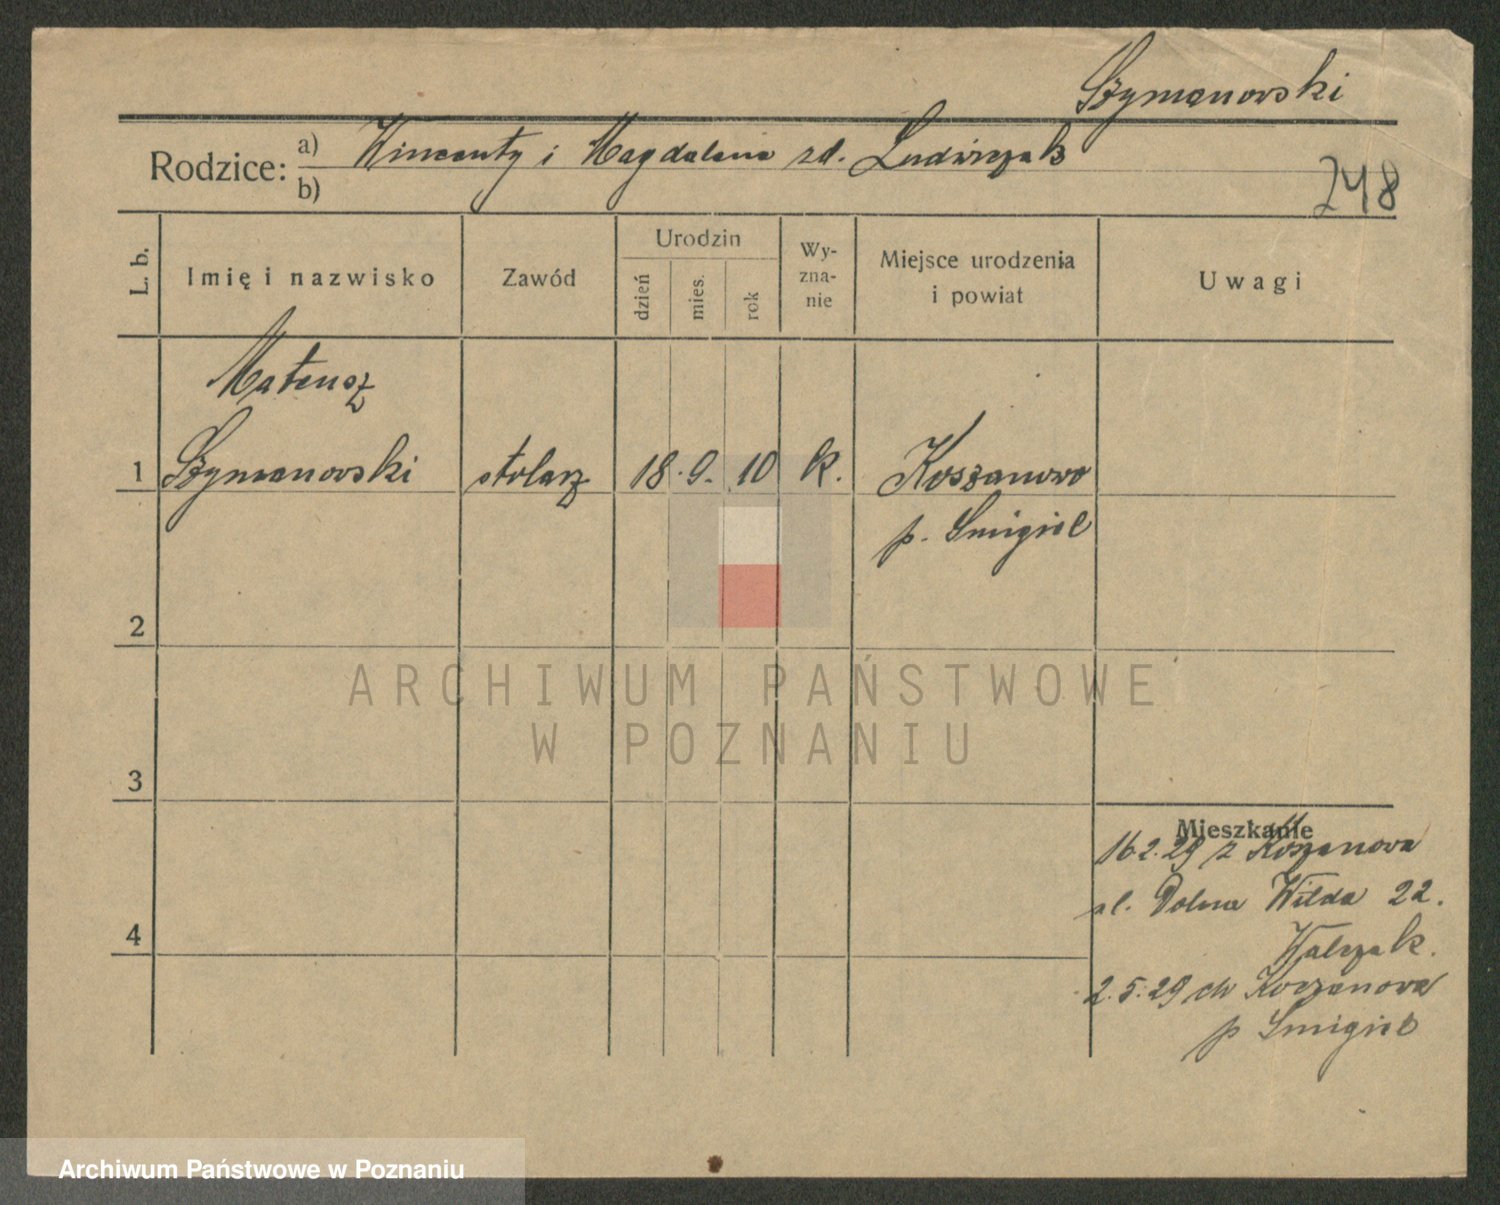 Szymanowski
Rodzice: a) Wincenty i Magdalena zd. Ludwiczak
b)
248
L. b.
Imię i nazwisko
Zawód
Urodzin
dzień
mies.
rok
Wy-
zna-
nie
Miejsce urodzenia
i powiat
Uwagi
Mateusz
1 Szymanowski stolarz 18. 9. 10 k. Koszanowo
p. Smigiel
2
ARCHIWUM PAŃSTWOWE
W POZNANIU
3
Mieszkanie
16.2.29 z Koszanowa
ul. Dolna Wilda 22.
4
Walczak.
2.5.29 do Koszanowa
p Smigiel
Archiwum Państwowe w Poznaniu